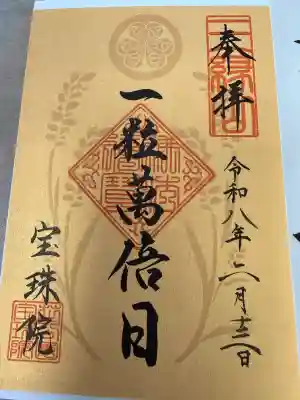 奉拝
令和八年二月十三日
一粒萬倍日
宝珠院